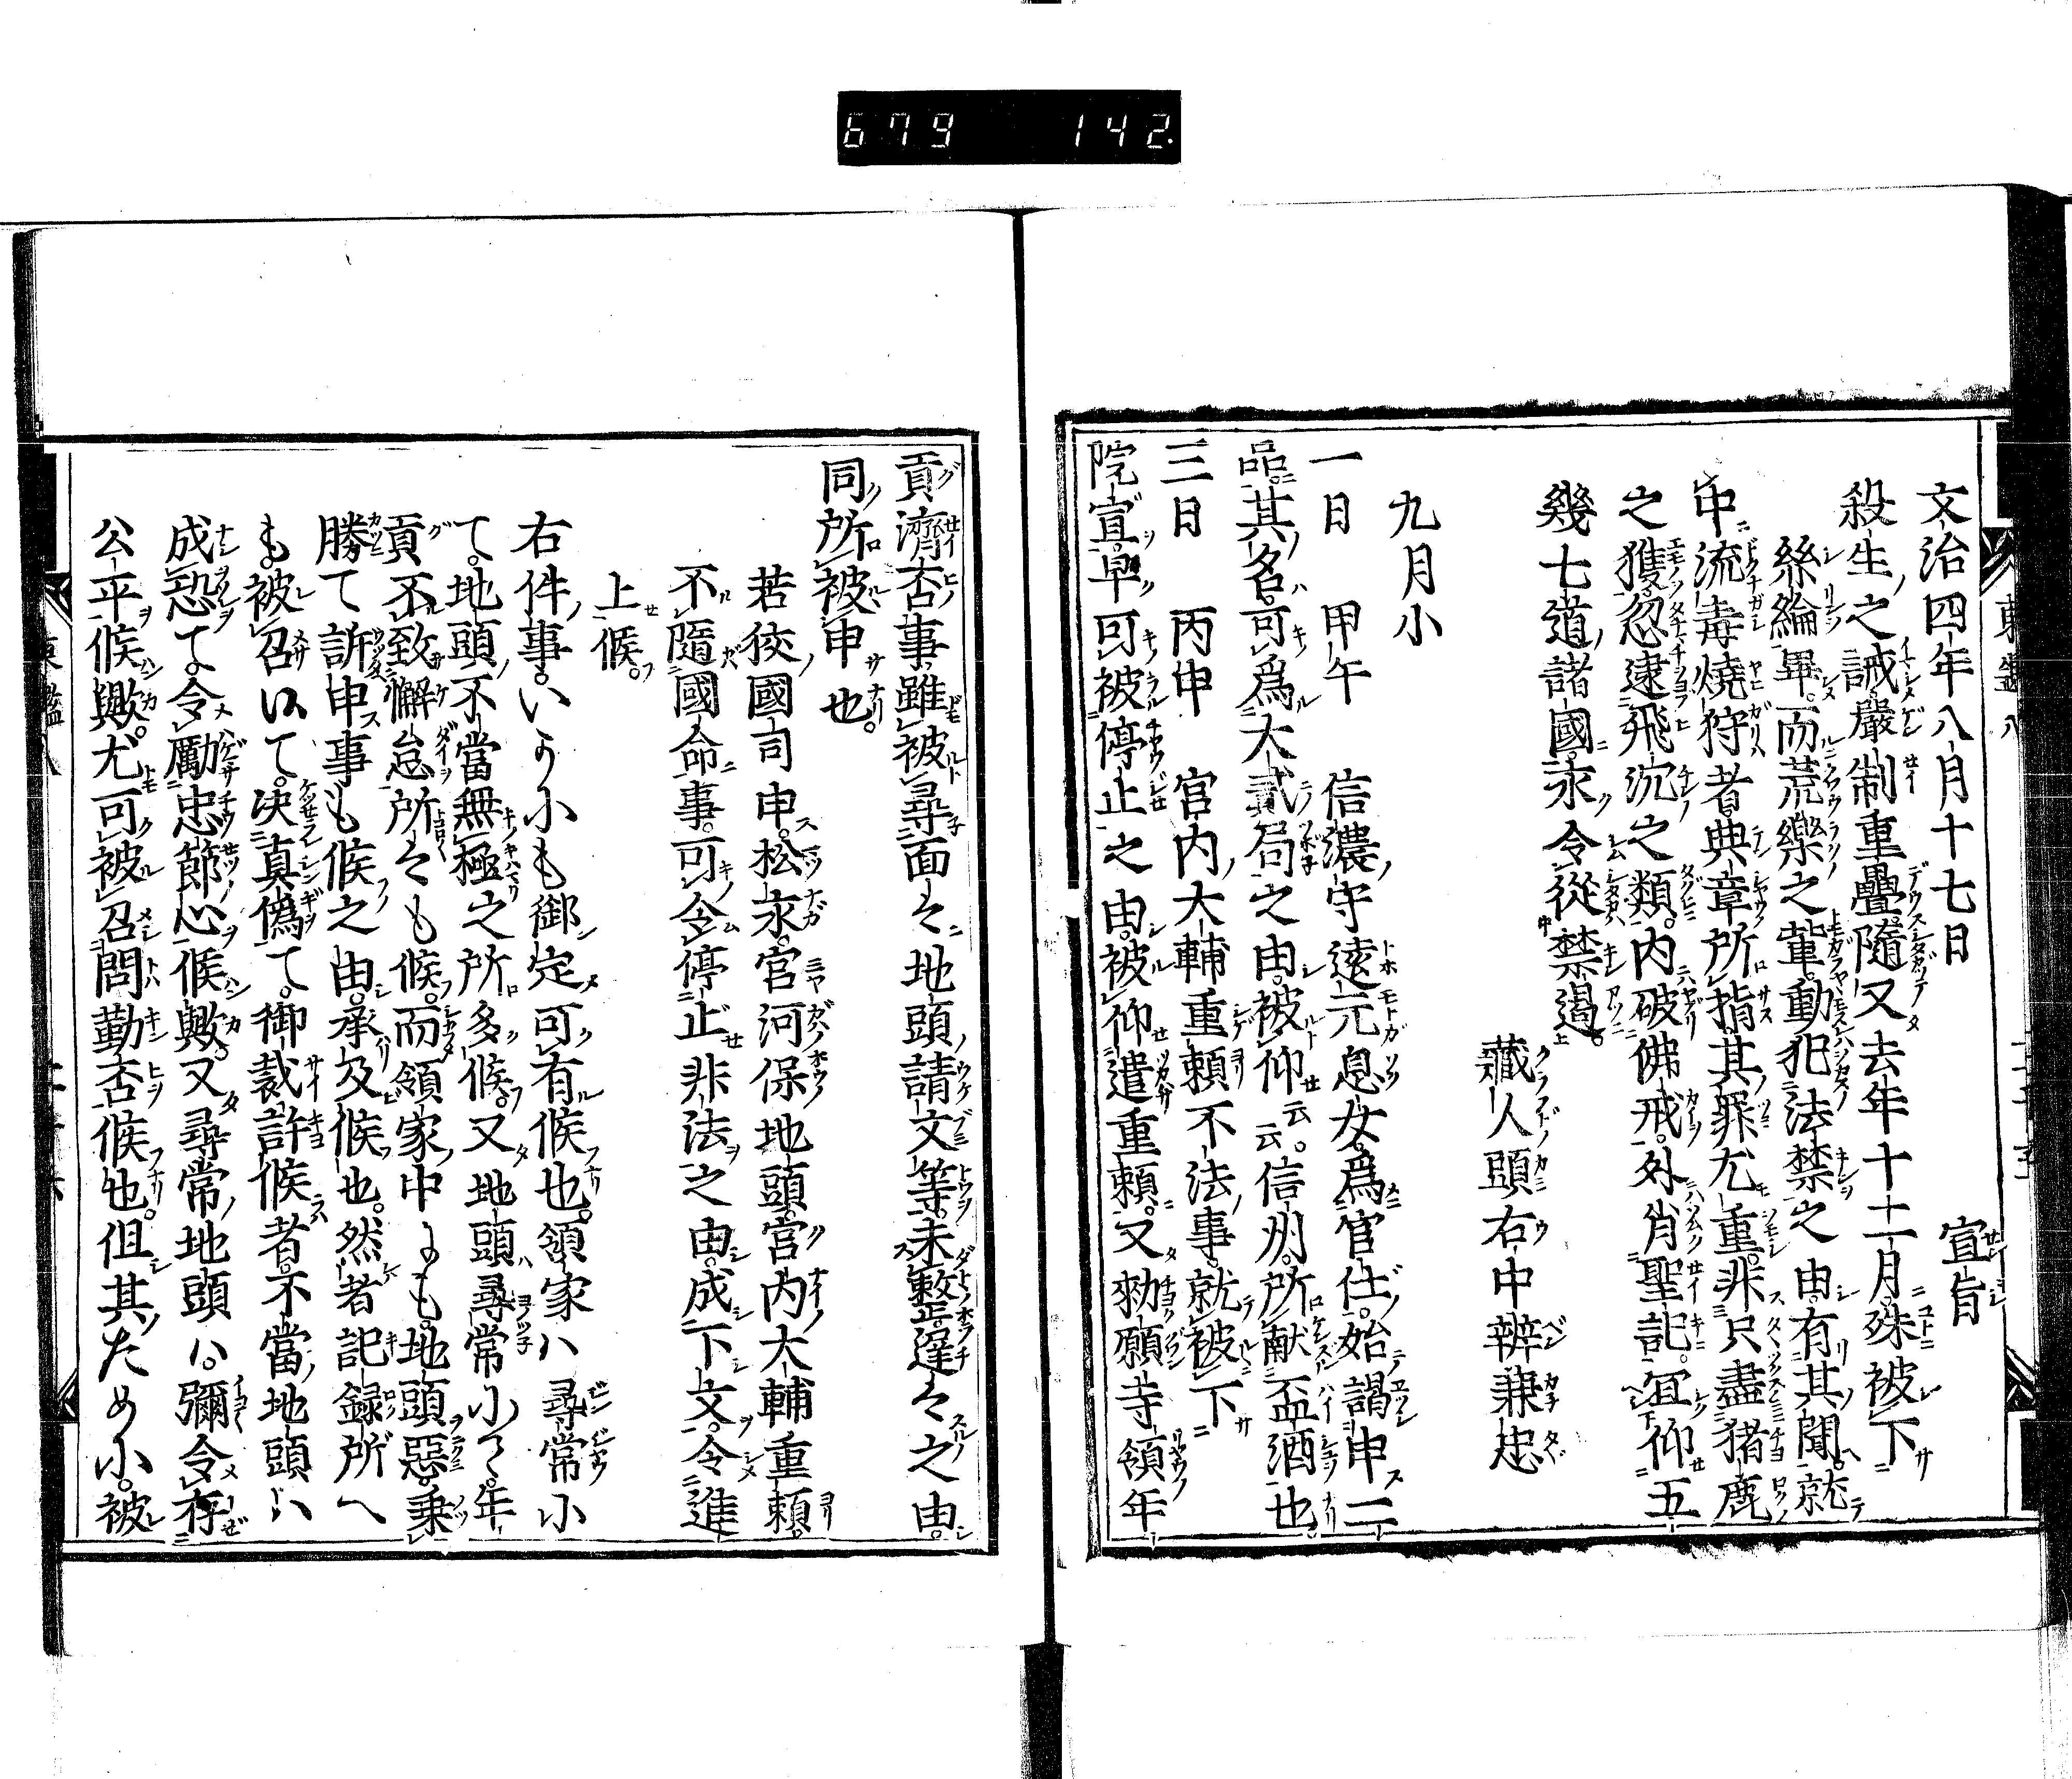 679 142
文治四年八月十七日 宣旨
殺生之誡嚴制重疊隨又去年十二月殊被下
絲綸畢而荒樂之輩動犯法禁之由有其聞就
中流毒燒狩者典章所指其罪尤重非只盡猪鹿
之獲忽逮飛沉之類内破佛戒外背聖記宜仰五
幾七道諸國永令從禁遏
藏人頭右中辨兼忠
九月小
一日 甲午 信濃守遠元息女爲官仕始謁申二
品其名可爲大貳局之由被仰云云信州所献盃酒也
三日 丙申 宮内大輔重頼不法事就被下
院宣早可被停止之由被仰遣重頼又勅願寺領年
貢濟否事雖被尋面々地頭請文等未整達々之由
同所被申也
若狹國司申松永宮河保地頭宮内大輔重頼
不隨國命事可令停止非法之由成下文令進
上候
右件事いう小も御定可有候也領家ハ尋常小
て地頭不當無極之所多候又地頭尋常小て年
貢不致懈怠所々も候而領家中よも地頭惡乗
勝て訴申事も候之由承及候也然者記録所へ
も被召以て决真僞て御裁許候者不當地頭ハ
成恐て令勵忠節心候歟又尋常地頭ハ彌令存
公平候歟尤可被召問勤否候也但其ため小被